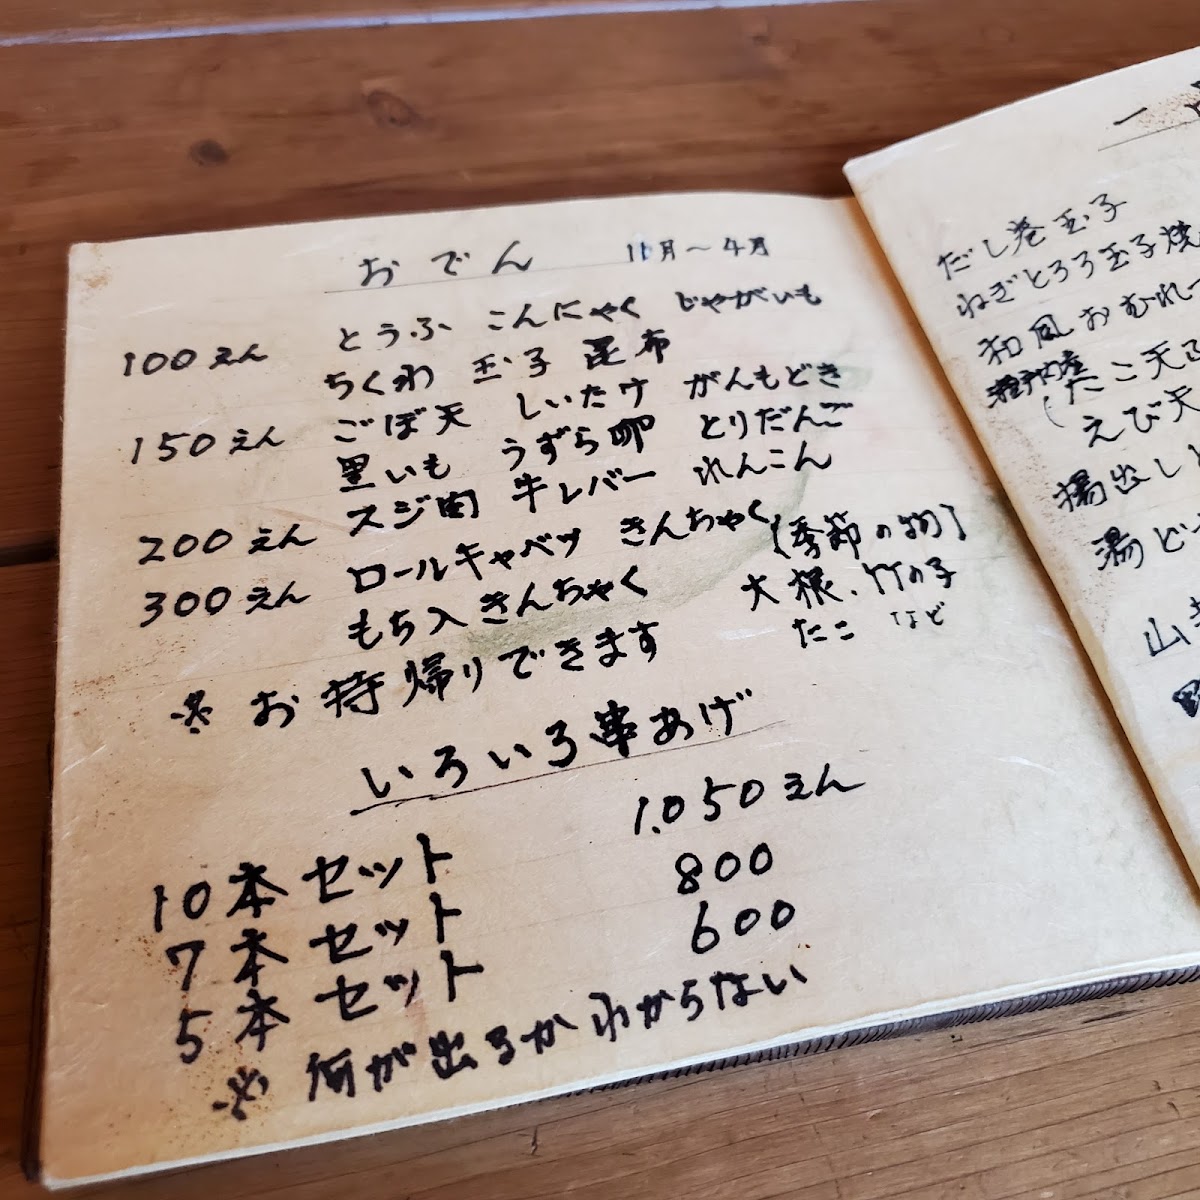 おでん 11月～4月
100えん とうふ こんにゃく じゃがいも
ちくわ 玉子 昆布
150えん ごぼ天 しいたけ がんもどき
里いも うずら卵 とりだんご
スジ肉 牛レバー れんこん
200えん ロールキャベツ きんちゃく
300えん もち入きんちゃく
(季節の物)
大根、竹の子
たこ など
※お持帰りできます
いろいろ串あげ
10本セット 1.050えん
7本セット 800
5本セット 600
※何が出るかわからない
一
だし巻玉子
ねぎとろろ玉子焼
和風おむれ
(たこ天
えび天
揚出し
湯ど
山
野